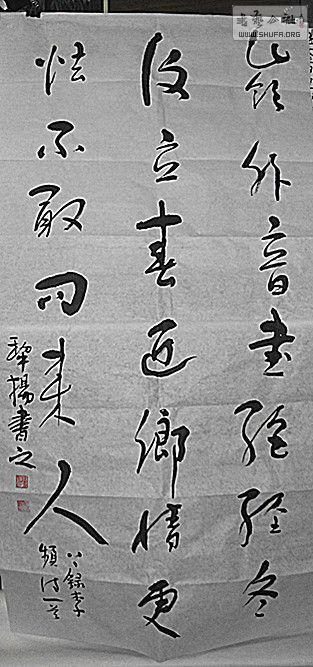 嶺外音書絕經冬
復立春近鄉情更
怯不敢問来人
錄李
頻诗一首
黎揚書之
書藝公社
WWW.SHUFA.ORG